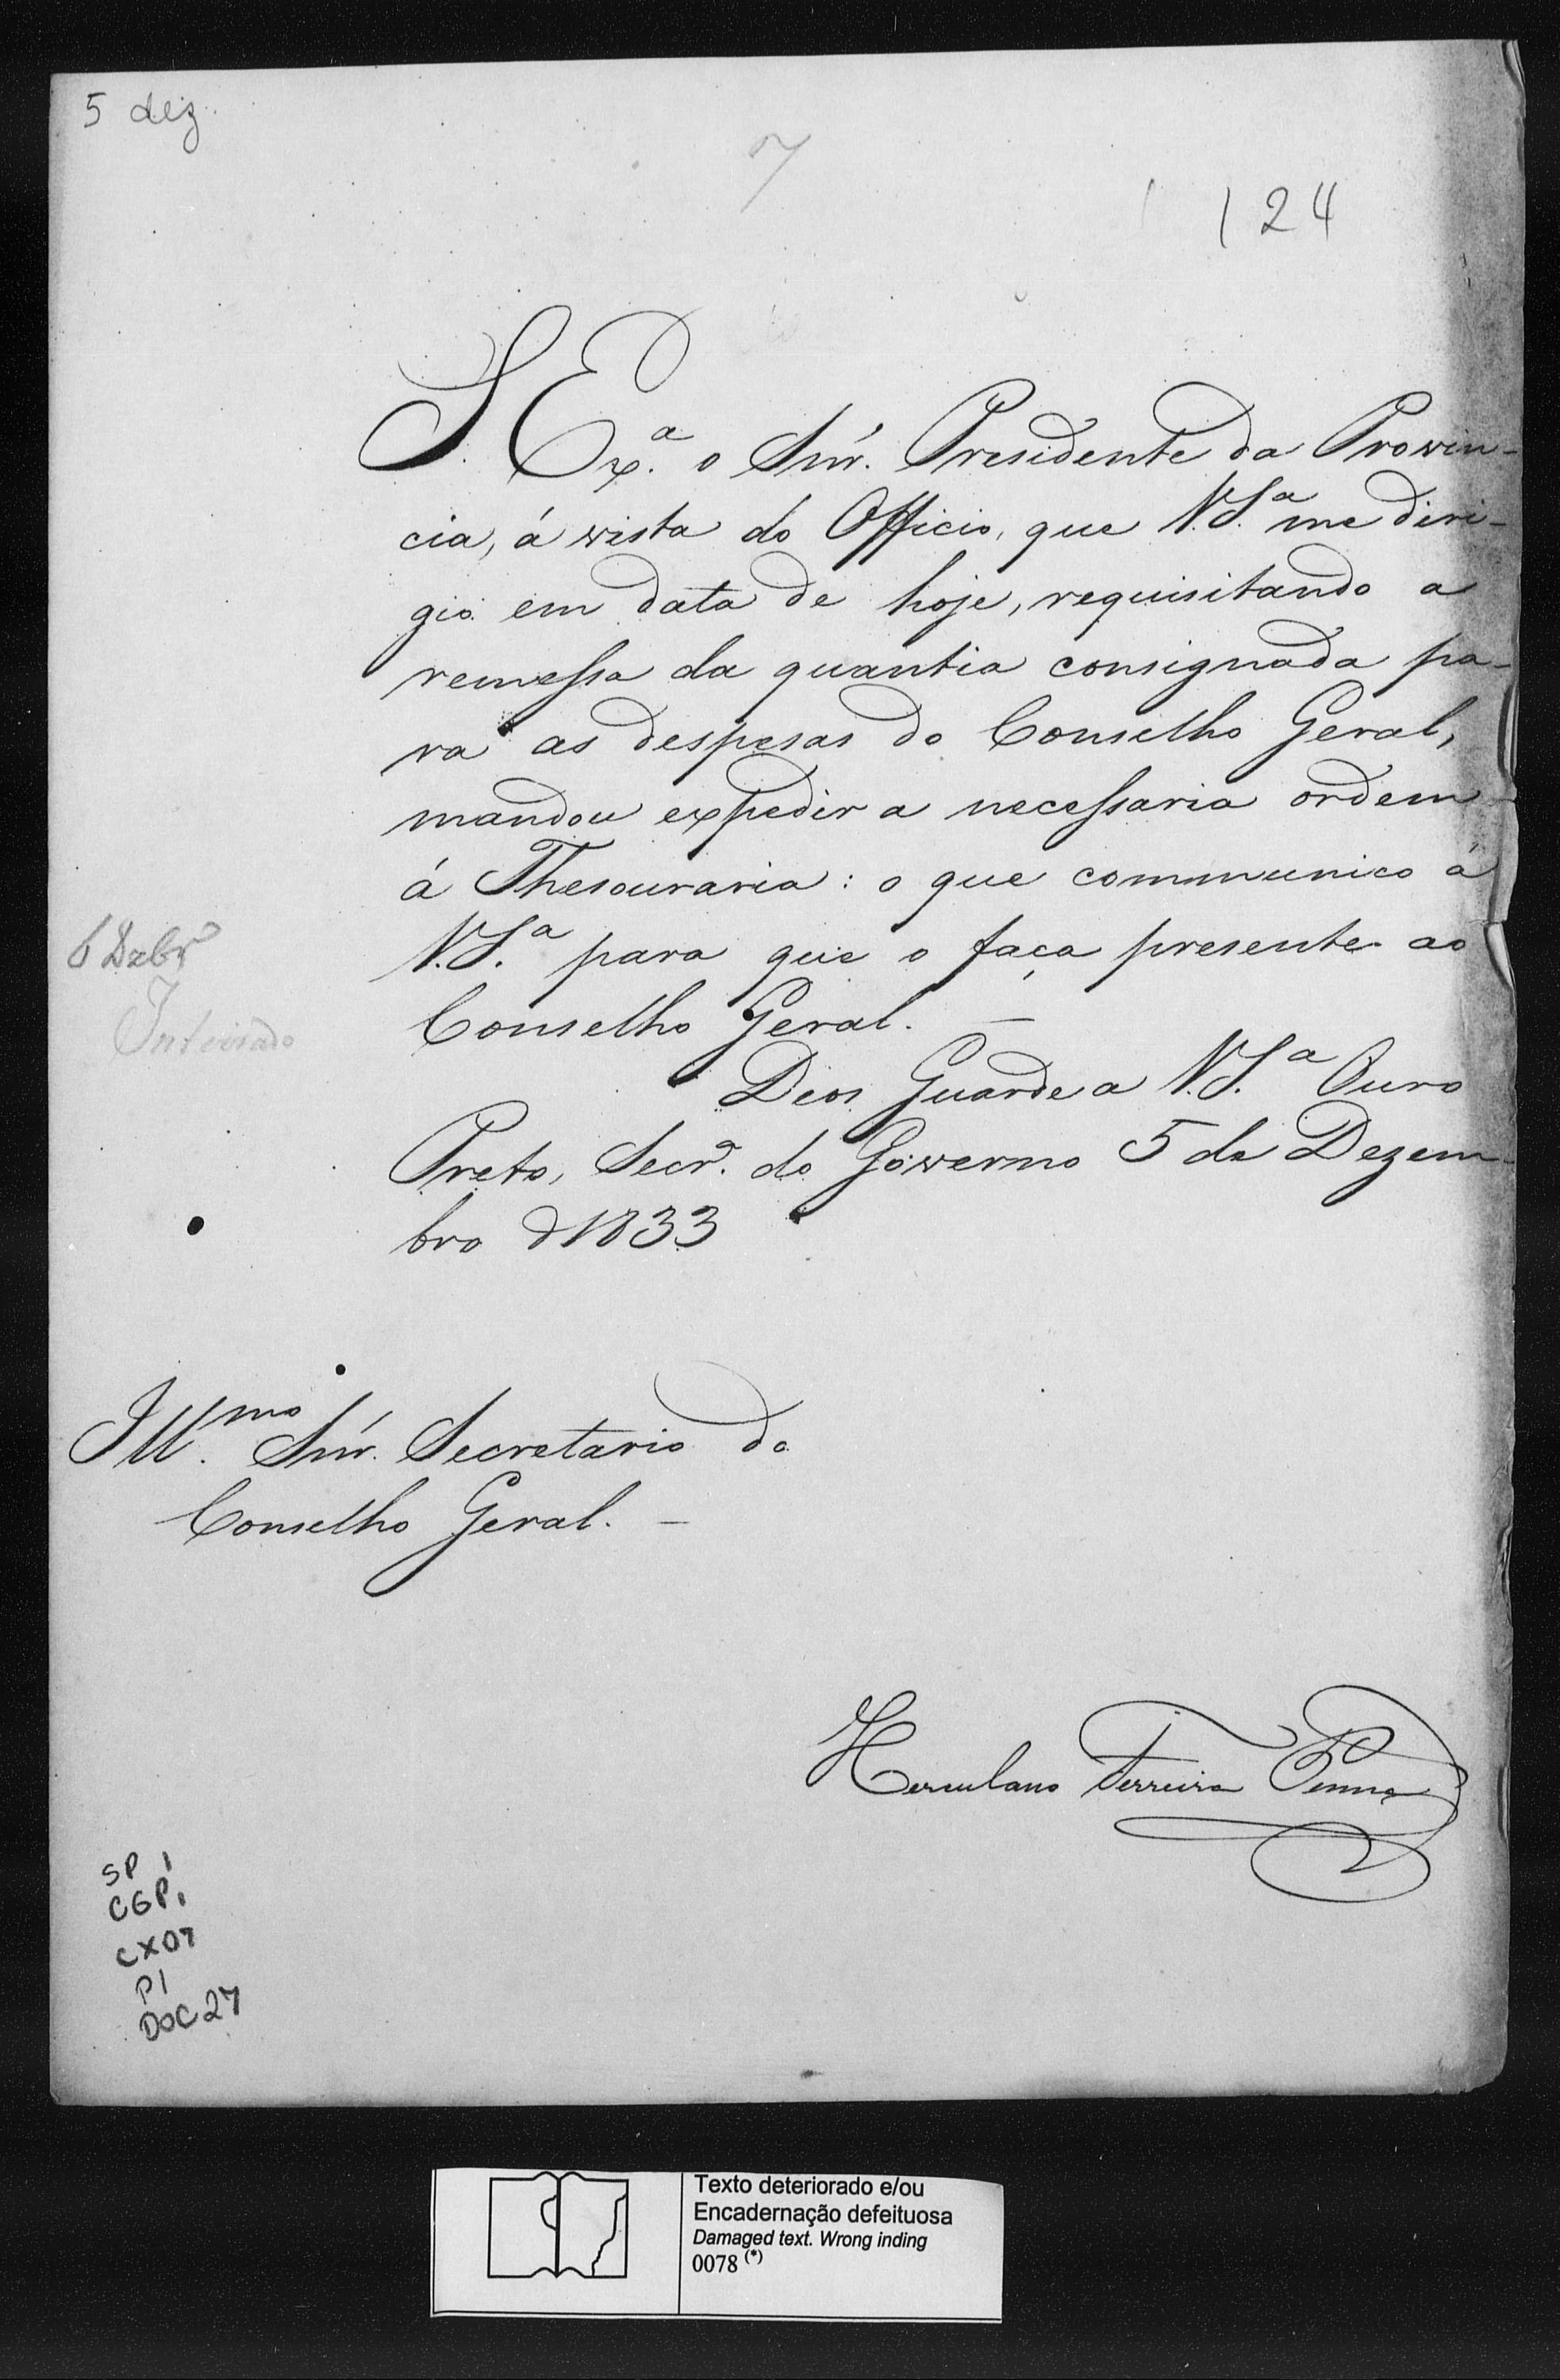 5 dez.
7
124
S. Ex.ª o Snr. Presidente da Provin-
cia, á vista do Officio, que V.S.ª me diri-
gio em data de hoje, requisitando a
remessa da quantia consignada pa-
ra as despesas do Conselho Geral,
mandou expedir a necessaria ordem
á Thesouraria: o que communico á
V.S.ª para que o faça presente ao
Conselho Geral. —
6 Dezbrº
Inteirado
Deos Guarde a V.S.ª Ouro
Preto, Secrª. do Governo 5 de Dezem-
bro d 1833
Illmo. Snr. Secretario do
Conselho Geral. —
Herculano Ferreira Penna
SP 1
CGP1
CX07
P1
DOC27
Texto deteriorado e/ou
Encadernação defeituosa
Damaged text. Wrong inding
0078 (*)